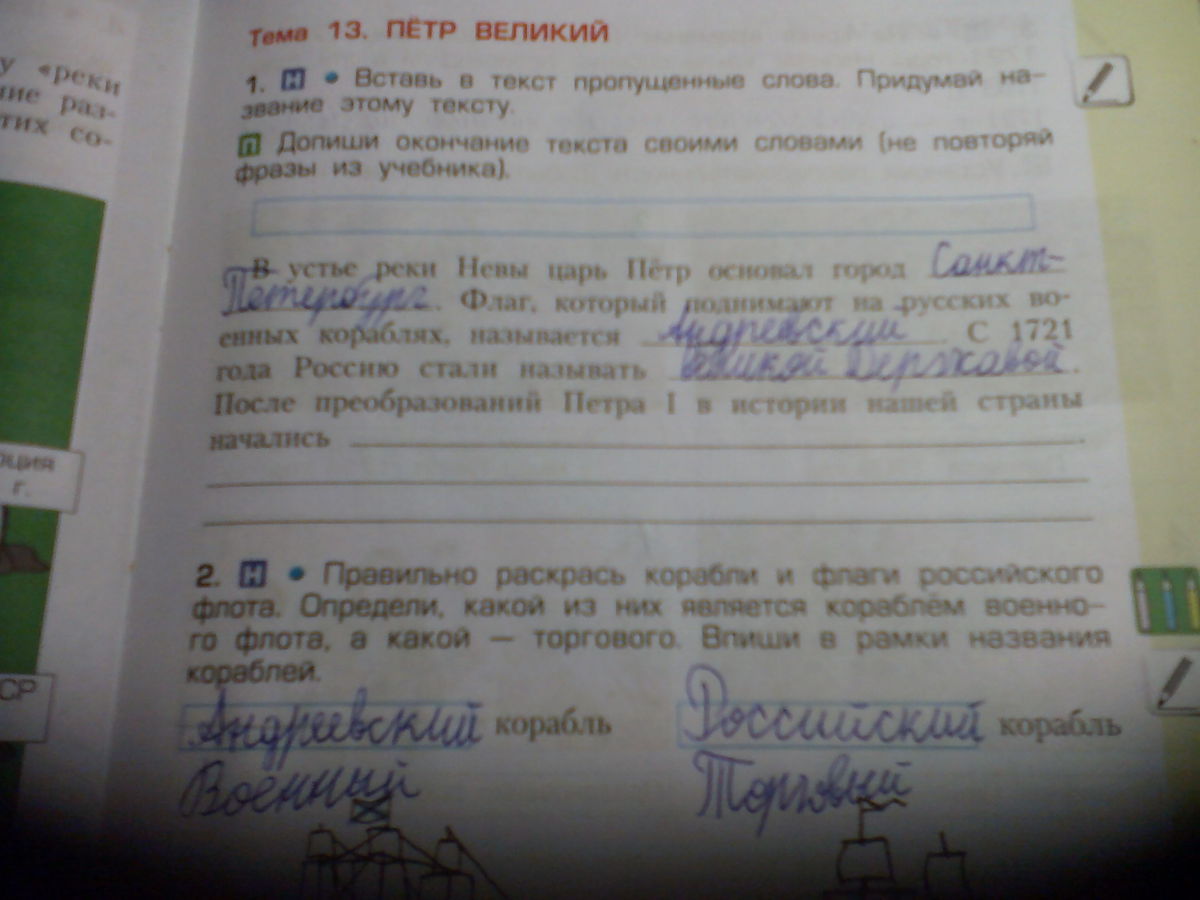 у «реки
ние раз-
тих со-
Тема 13. ПЁТР ВЕЛИКИЙ
1. Н • Вставь в текст пропущенные слова. Придумай на-
звание этому тексту.
П Допиши окончание текста своими словами (не повторяй
фразы из учебника).
В устье реки Невы царь Пётр основал город Санкт-
Петербург. Флаг, который поднимают на русских во-
енных кораблях, называется Андреевский. С 1721
года Россию стали называть великой Державой.
После преобразований Петра I в истории нашей страны
начались
г.
2. Н • Правильно раскрась корабли и флаги российского
флота. Определи, какой из них является кораблём военно-
го флота, а какой — торгового. Впиши в рамки названия
кораблей.
СР
Андреевский корабль Российский корабль
Военный Торговый